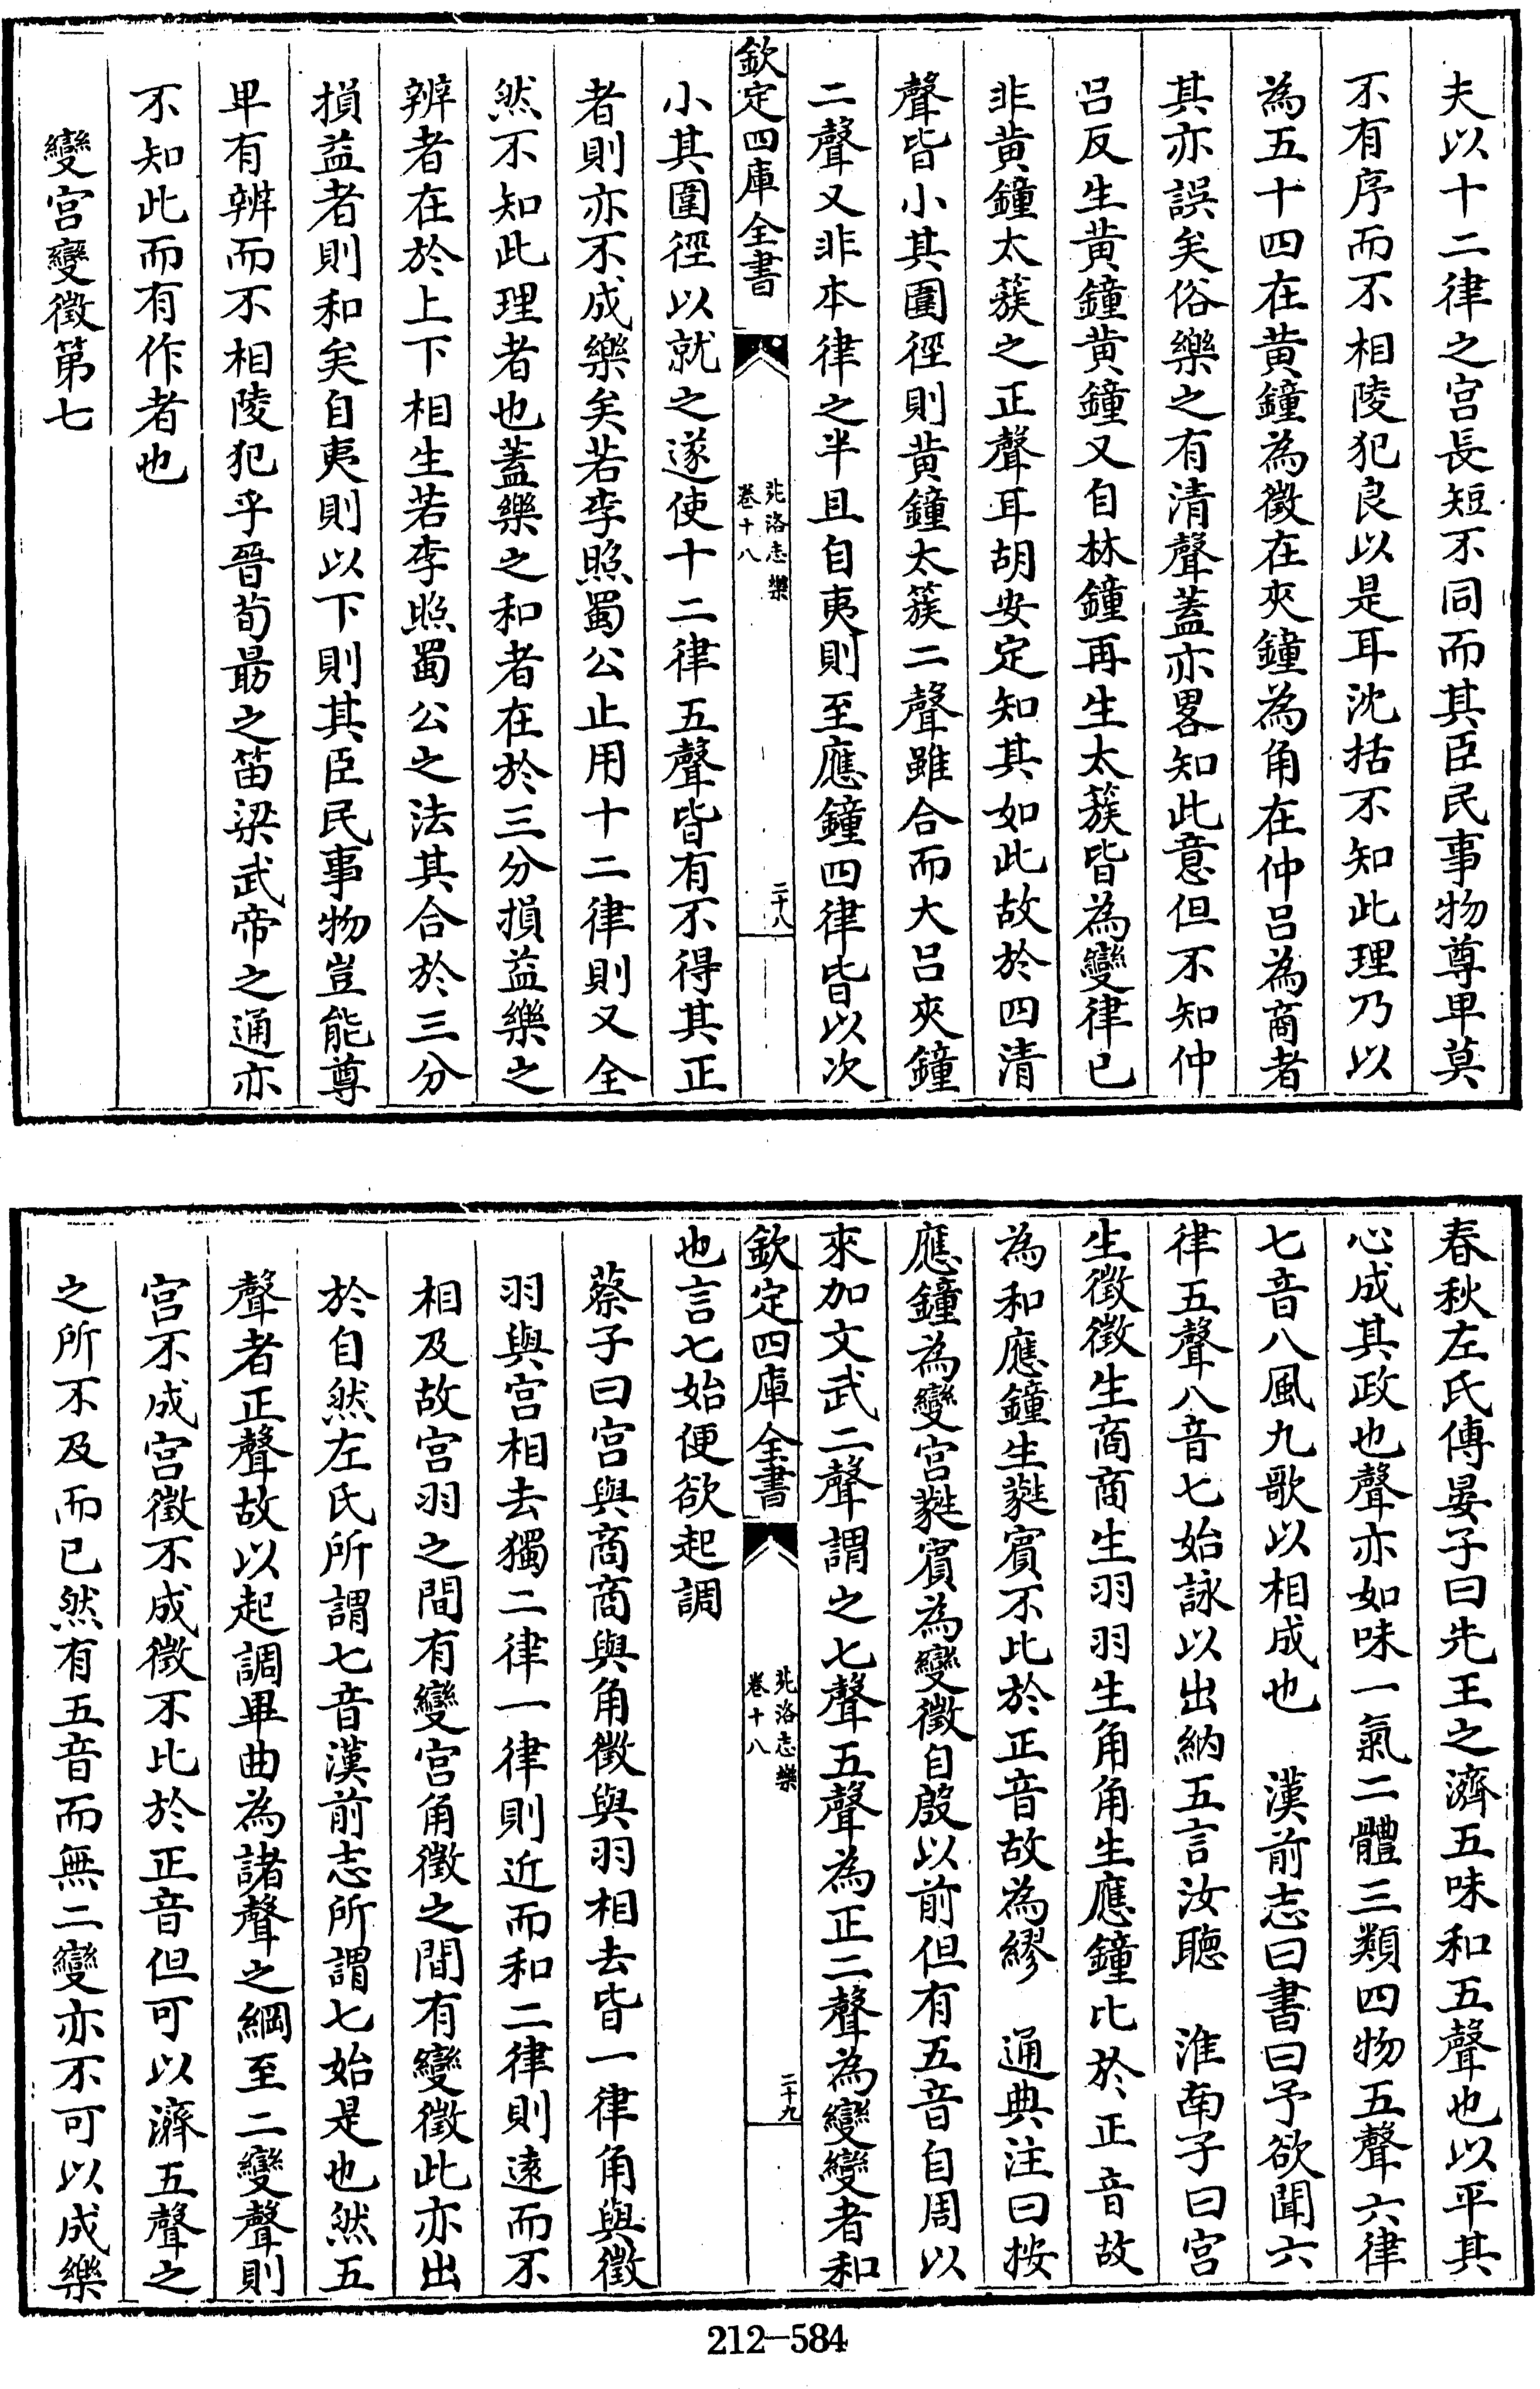 夫以十二律之宫長短不同而其臣民事物尊卑莫
不有序而不相陵犯良以是耳沈括不知此理乃以
為五十四在黄鐘為徵在夾鐘為角在仲呂為商者
其亦誤矣俗樂之有清聲蓋亦畧知此意但不知仲
呂反生黄鐘黄鐘又自林鐘再生太蔟皆為變律已
非黄鐘太蔟之正聲耳胡安定知其如此故於四清
聲皆小其圍徑則黄鐘太簇二聲雖合而大呂夾鐘
二聲又非本律之半且自夷則至應鐘四律皆以次
欽定四庫全書
苑洛志樂
卷十八
二十八
小其圍徑以就之遂使十二律五聲皆有不得其正
者則亦不成樂矣若李照蜀公止用十二律則又全
然不知此理者也蓋樂之和者在於三分損益樂之
辨者在於上下相生若李照蜀公之法其合於三分
損益者則和矣自夷則以下則其臣民事物豈能尊
卑有辨而不相陵犯乎晉荀朂之笛梁武帝之通亦
不知此而有作者也
變宫變徵第七
春秋左氏傳晏子曰先王之濟五味和五聲也以平其
心成其政也聲亦如味一氣二體三類四物五聲六律
七音八風九歌以相成也　漢前志曰書曰予欲聞六
律五聲八音七始詠以出納五言汝聽　淮南子曰宫
生徵徵生商商生羽羽生角角生應鐘比於正音故
為和應鐘生蕤賓不比於正音故為繆　通典注曰按
應鐘為變宫蕤賓為變徵自殷以前但有五音自周以
來加文武二聲謂之七聲五聲為正二聲為變變者和
欽定四庫全書
苑洛志樂
卷十八
二十九
也言七始便欲起調
蔡子曰宫與商商與角徵與羽相去皆一律角與徵
羽與宫相去獨二律一律則近而和二律則遠而不
相及故宫羽之間有變宫角徵之間有變徵此亦出
於自然左氏所謂七音漢前志所謂七始是也然五
聲者正聲故以起調畢曲為諸聲之綱至二變聲則
宫不成宫徵不成徵不比於正音但可以濟五聲之
之所不及而已然有五音而無二變亦不可以成樂
212-584